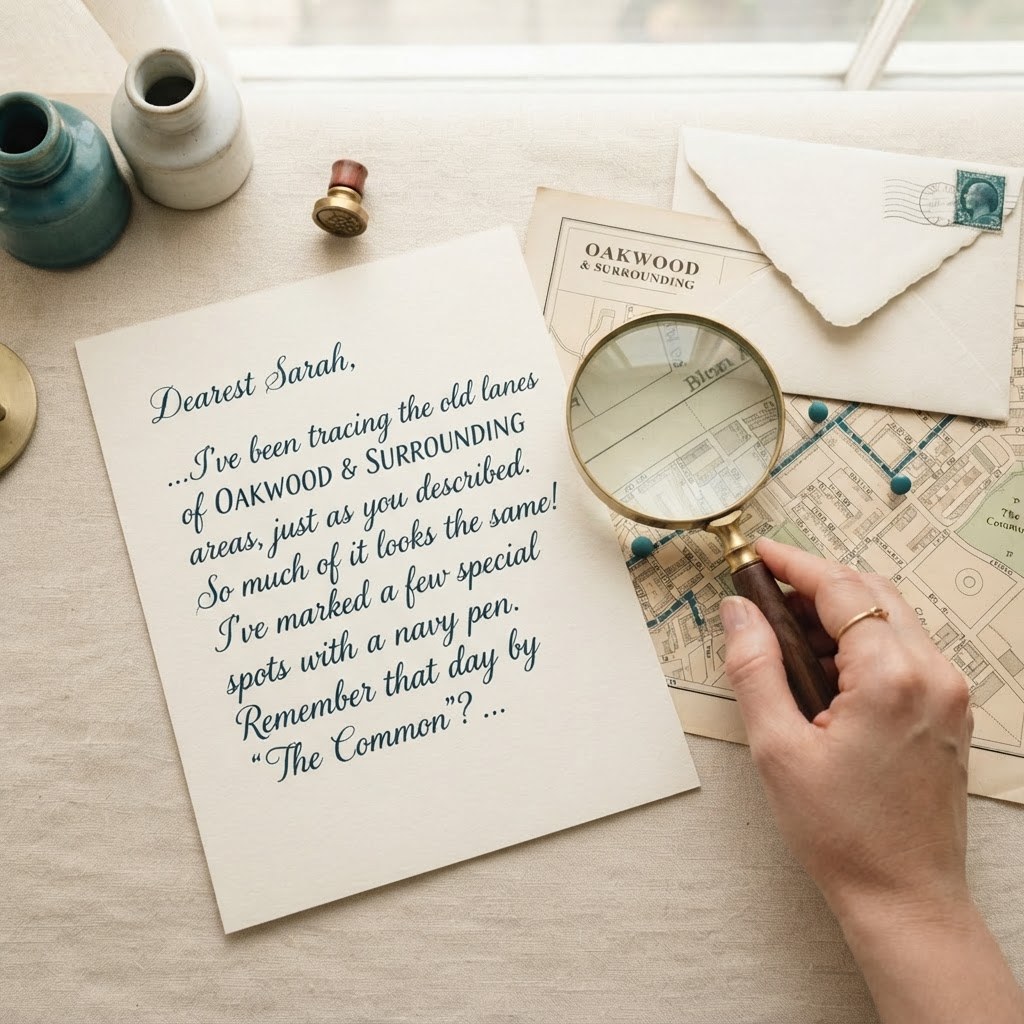 Dearest Sarah,
...I've been tracing the old lanes
of OAKWOOD & SURROUNDING
areas, just as you described.
So much of it looks the same!
I've marked a few special
spots with a navy pen.
Remember that day by
“The Common”? ...
OAKWOOD
& SURROUNDING
The